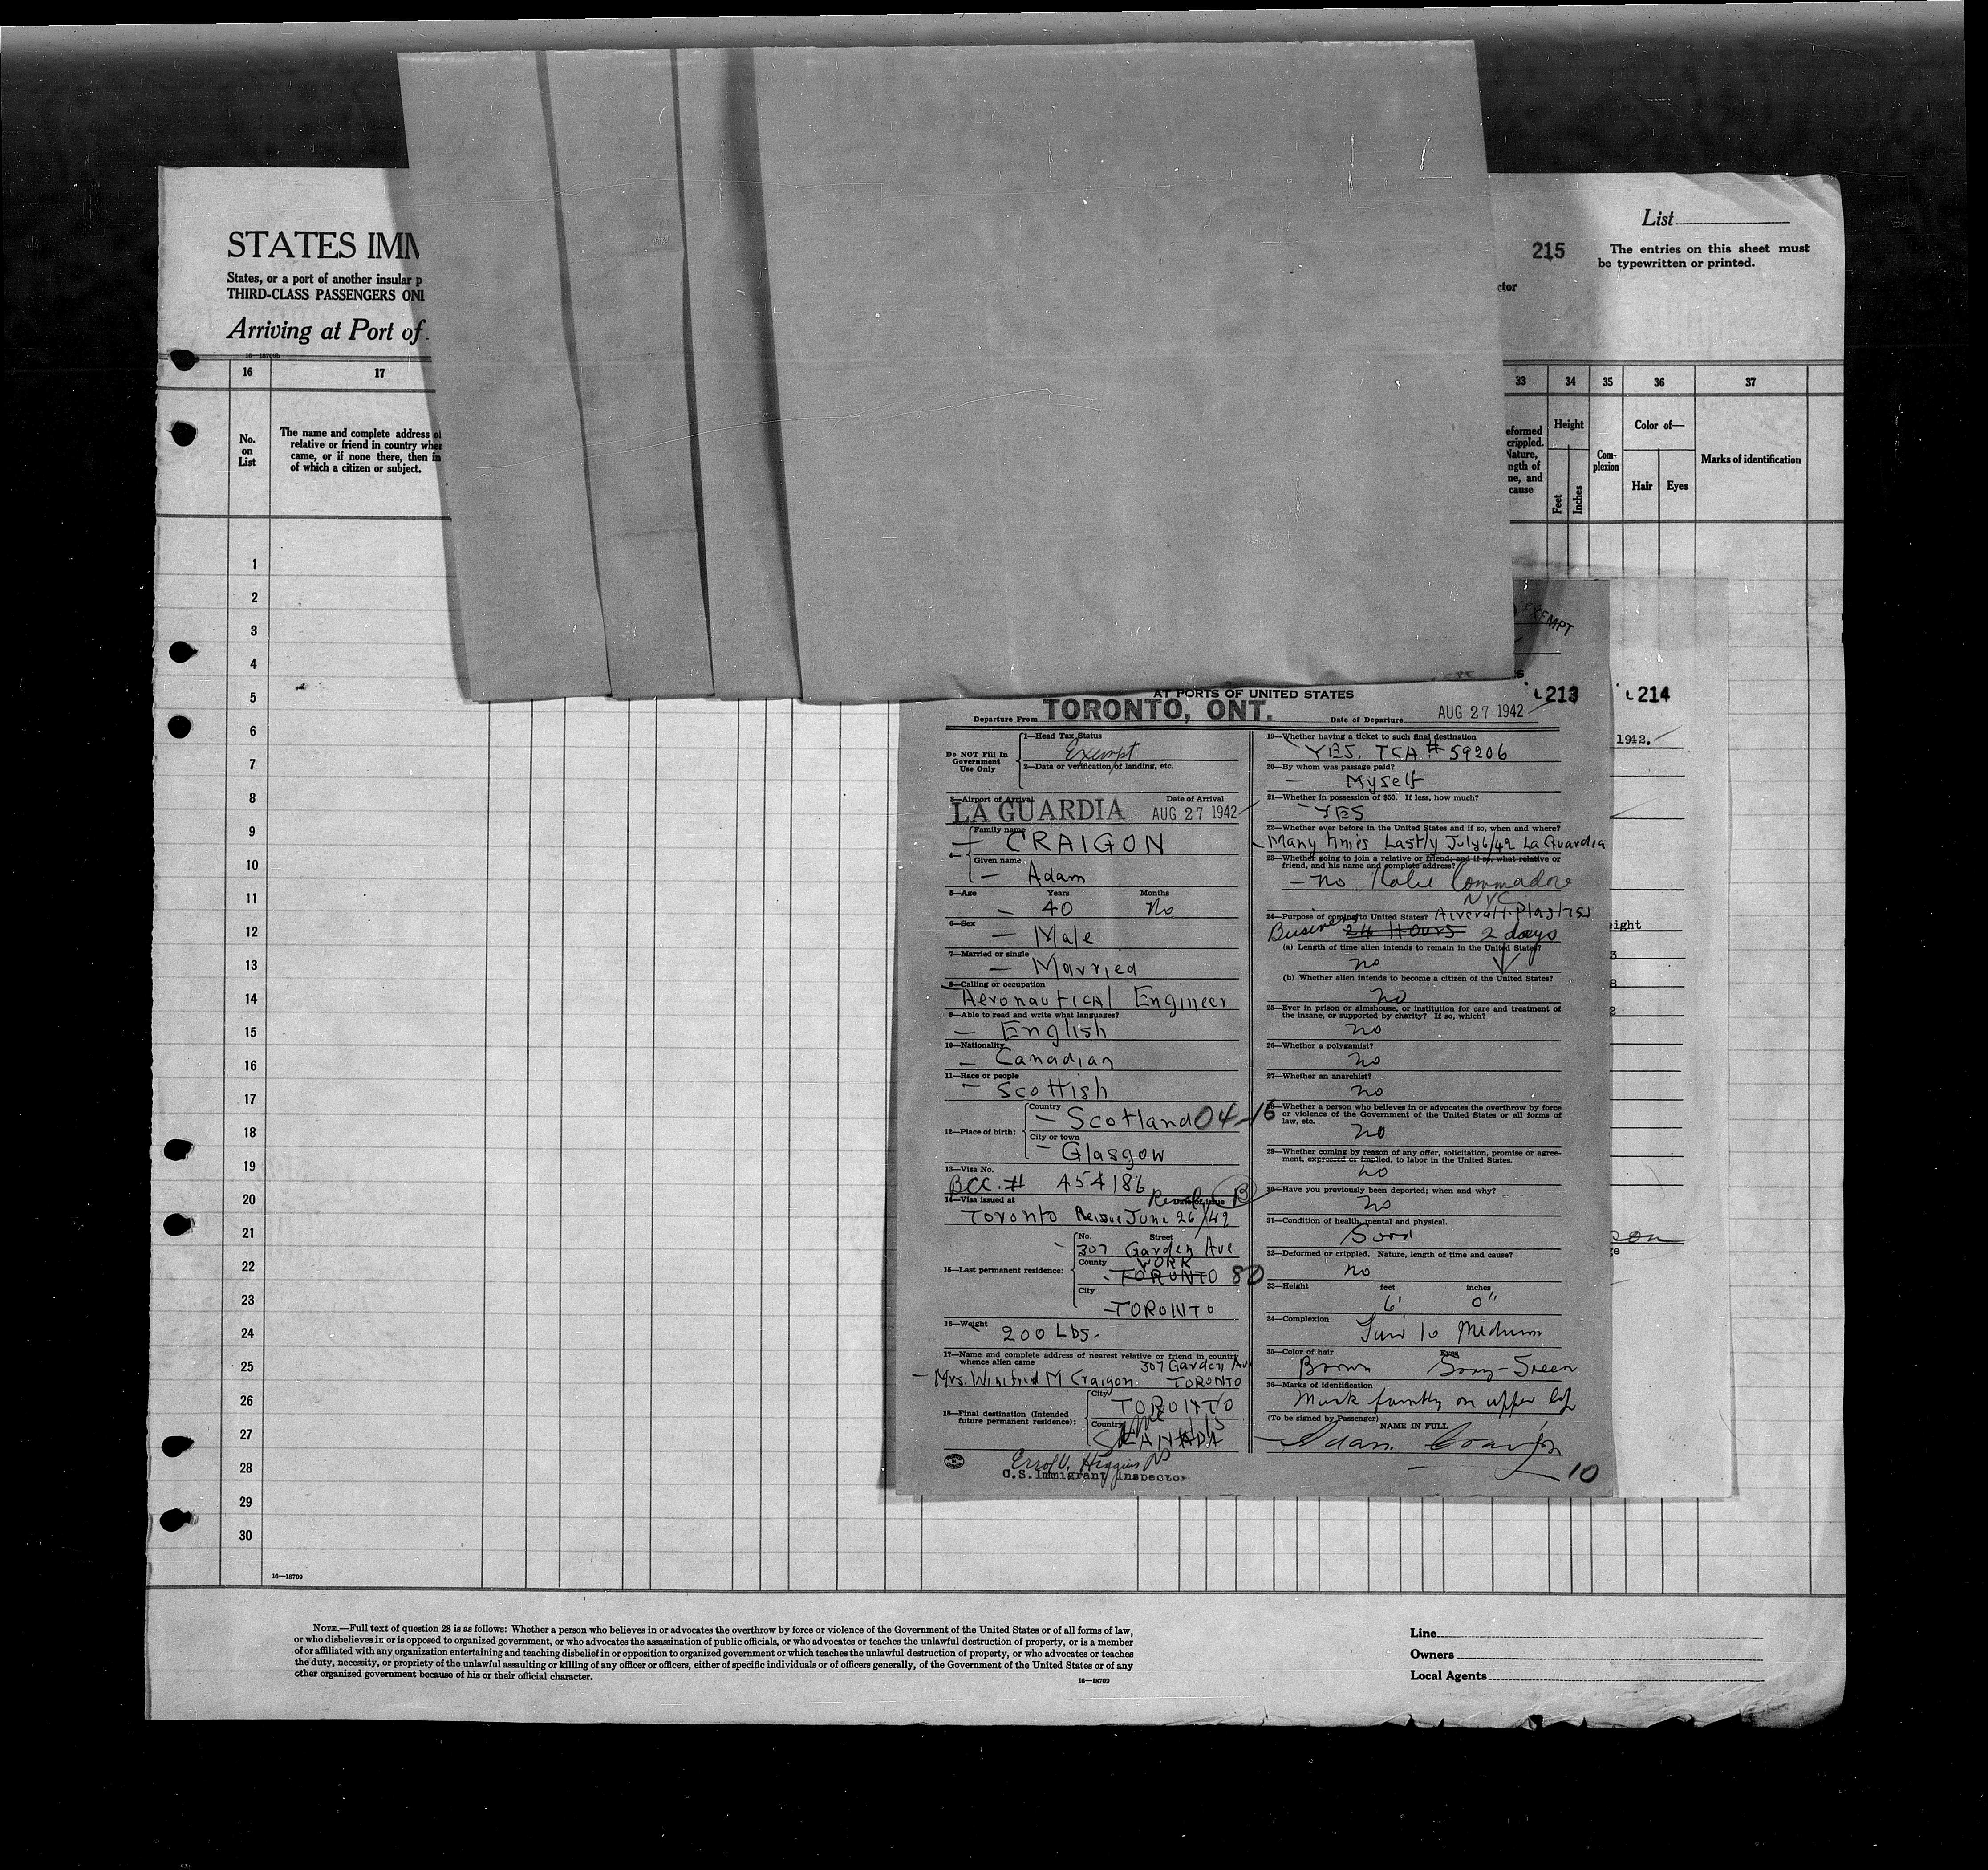 STATES IMM
States, or a port of another insular p
THIRD-CLASS PASSENGERS ONL
Arriving at Port of
16—18709b
215
ctor
List
The entries on this sheet must
be typewritten or printed.
16 17
33 34 35 36 37
No.
on
List
The name and complete address of
relative or friend in country whe
came, or if none there, then in
of which a citizen or subject.
eformed
crippled.
Nature,
ngth of
ne, and
cause
Height
Feet Inches
Com-
plexion
Color of—
Hair Eyes
Marks of identification
1
2
3
4
5
6
7
8
9
10
11
12
13
14
15
16
17
18
19
20
21
22
23
24
25
26
27
28
29
30
EXEMPT
213
214
1942.
eight
3
8
2
AT PORTS OF UNITED STATES
Departure From TORONTO, ONT. Date of Departure AUG 27 1942
Do NOT Fill In
Government
Use Only
1—Head Tax Status
Exempt
2—Data or verification of landing, etc.
3—Airport of Arrival Date of Arrival
LA GUARDIA AUG 27 1942
Family name
CRAIGON
4—
Given name
Adam
5—Age Years Months
40 No
6—Sex
Male
7—Married or single
Married
8—Calling or occupation
Aeronautical Engineer
9—Able to read and write what languages?
English
10—Nationality
Canadian
11—Race or people
Scottish
12—Place of birth:
Country
Scotland 04-16
City or town
Glasgow
13—Visa No.
BCC.# 454186
14—Visa issued at Date of issue B
Toronto Reissue June 26/42
15—Last permanent residence:
No. Street
307 Garden Ave
County YORK
TORONTO 80
City
TORONTO
16—Weight
200 Lbs.
17—Name and complete address of nearest relative or friend in country
whence alien came 307 Garden Ave
Mrs. Winifred M Craigon TORONTO
18—Final destination (Intended
future permanent residence):
City
TORONTO
Country
CANADA
Errol V. Higgins
U.S. Immigrant Inspector
19—Whether having a ticket to such final destination
YES. TCA # 59206
20—By whom was passage paid?
Myself
21—Whether in possession of $50. If less, how much?
YES
22—Whether ever before in the United States and if so, when and where?
Many times Lastly July 6/42 La Guardia
23—Whether going to join a relative or friend; and if so, what relative or
friend, and his name and complete address?
no Hotel Commodore
NYC
24—Purpose of coming to United States? Aircraft Plastics
Business 24 HOURS 2 days
(a) Length of time alien intends to remain in the United States?
no
(b) Whether alien intends to become a citizen of the United States?
no
25—Ever in prison or almshouse, or institution for care and treatment of
the insane, or supported by charity? If so, which?
no
26—Whether a polygamist?
no
27—Whether an anarchist?
no
28—Whether a person who believes in or advocates the overthrow by force
or violence of the Government of the United States or all forms of
law, etc.
no
29—Whether coming by reason of any offer, solicitation, promise or agree-
ment, expressed or implied, to labor in the United States.
no
30—Have you previously been deported; when and why?
no
31—Condition of health, mental and physical.
Good
32—Deformed or crippled. Nature, length of time and cause?
no
33—Height feet inches
6' 0"
34—Complexion
Fair to Medium
35—Color of hair Eyes
Brown Gray-Green
36—Marks of identification
Mark faintly on upper lip
(To be signed by Passenger)
NAME IN FULL
Adam Craigon
10
16—18709
NOTE.—Full text of question 28 is as follows: Whether a person who believes in or advocates the overthrow by force or violence of the Government of the United States or of all forms of law,
or who disbelieves in or is opposed to organized government, or who advocates the assassination of public officials, or who advocates or teaches the unlawful destruction of property, or is a member
of or affiliated with any organization entertaining and teaching disbelief in or opposition to organized government or which teaches the unlawful destruction of property, or who advocates or teaches
the duty, necessity, or propriety of the unlawful assaulting or killing of any officer or officers, either of specific individuals or of officers generally, of the Government of the United States or of any
other organized government because of his or their official character.
16—18709
Line
Owners
Local Agents